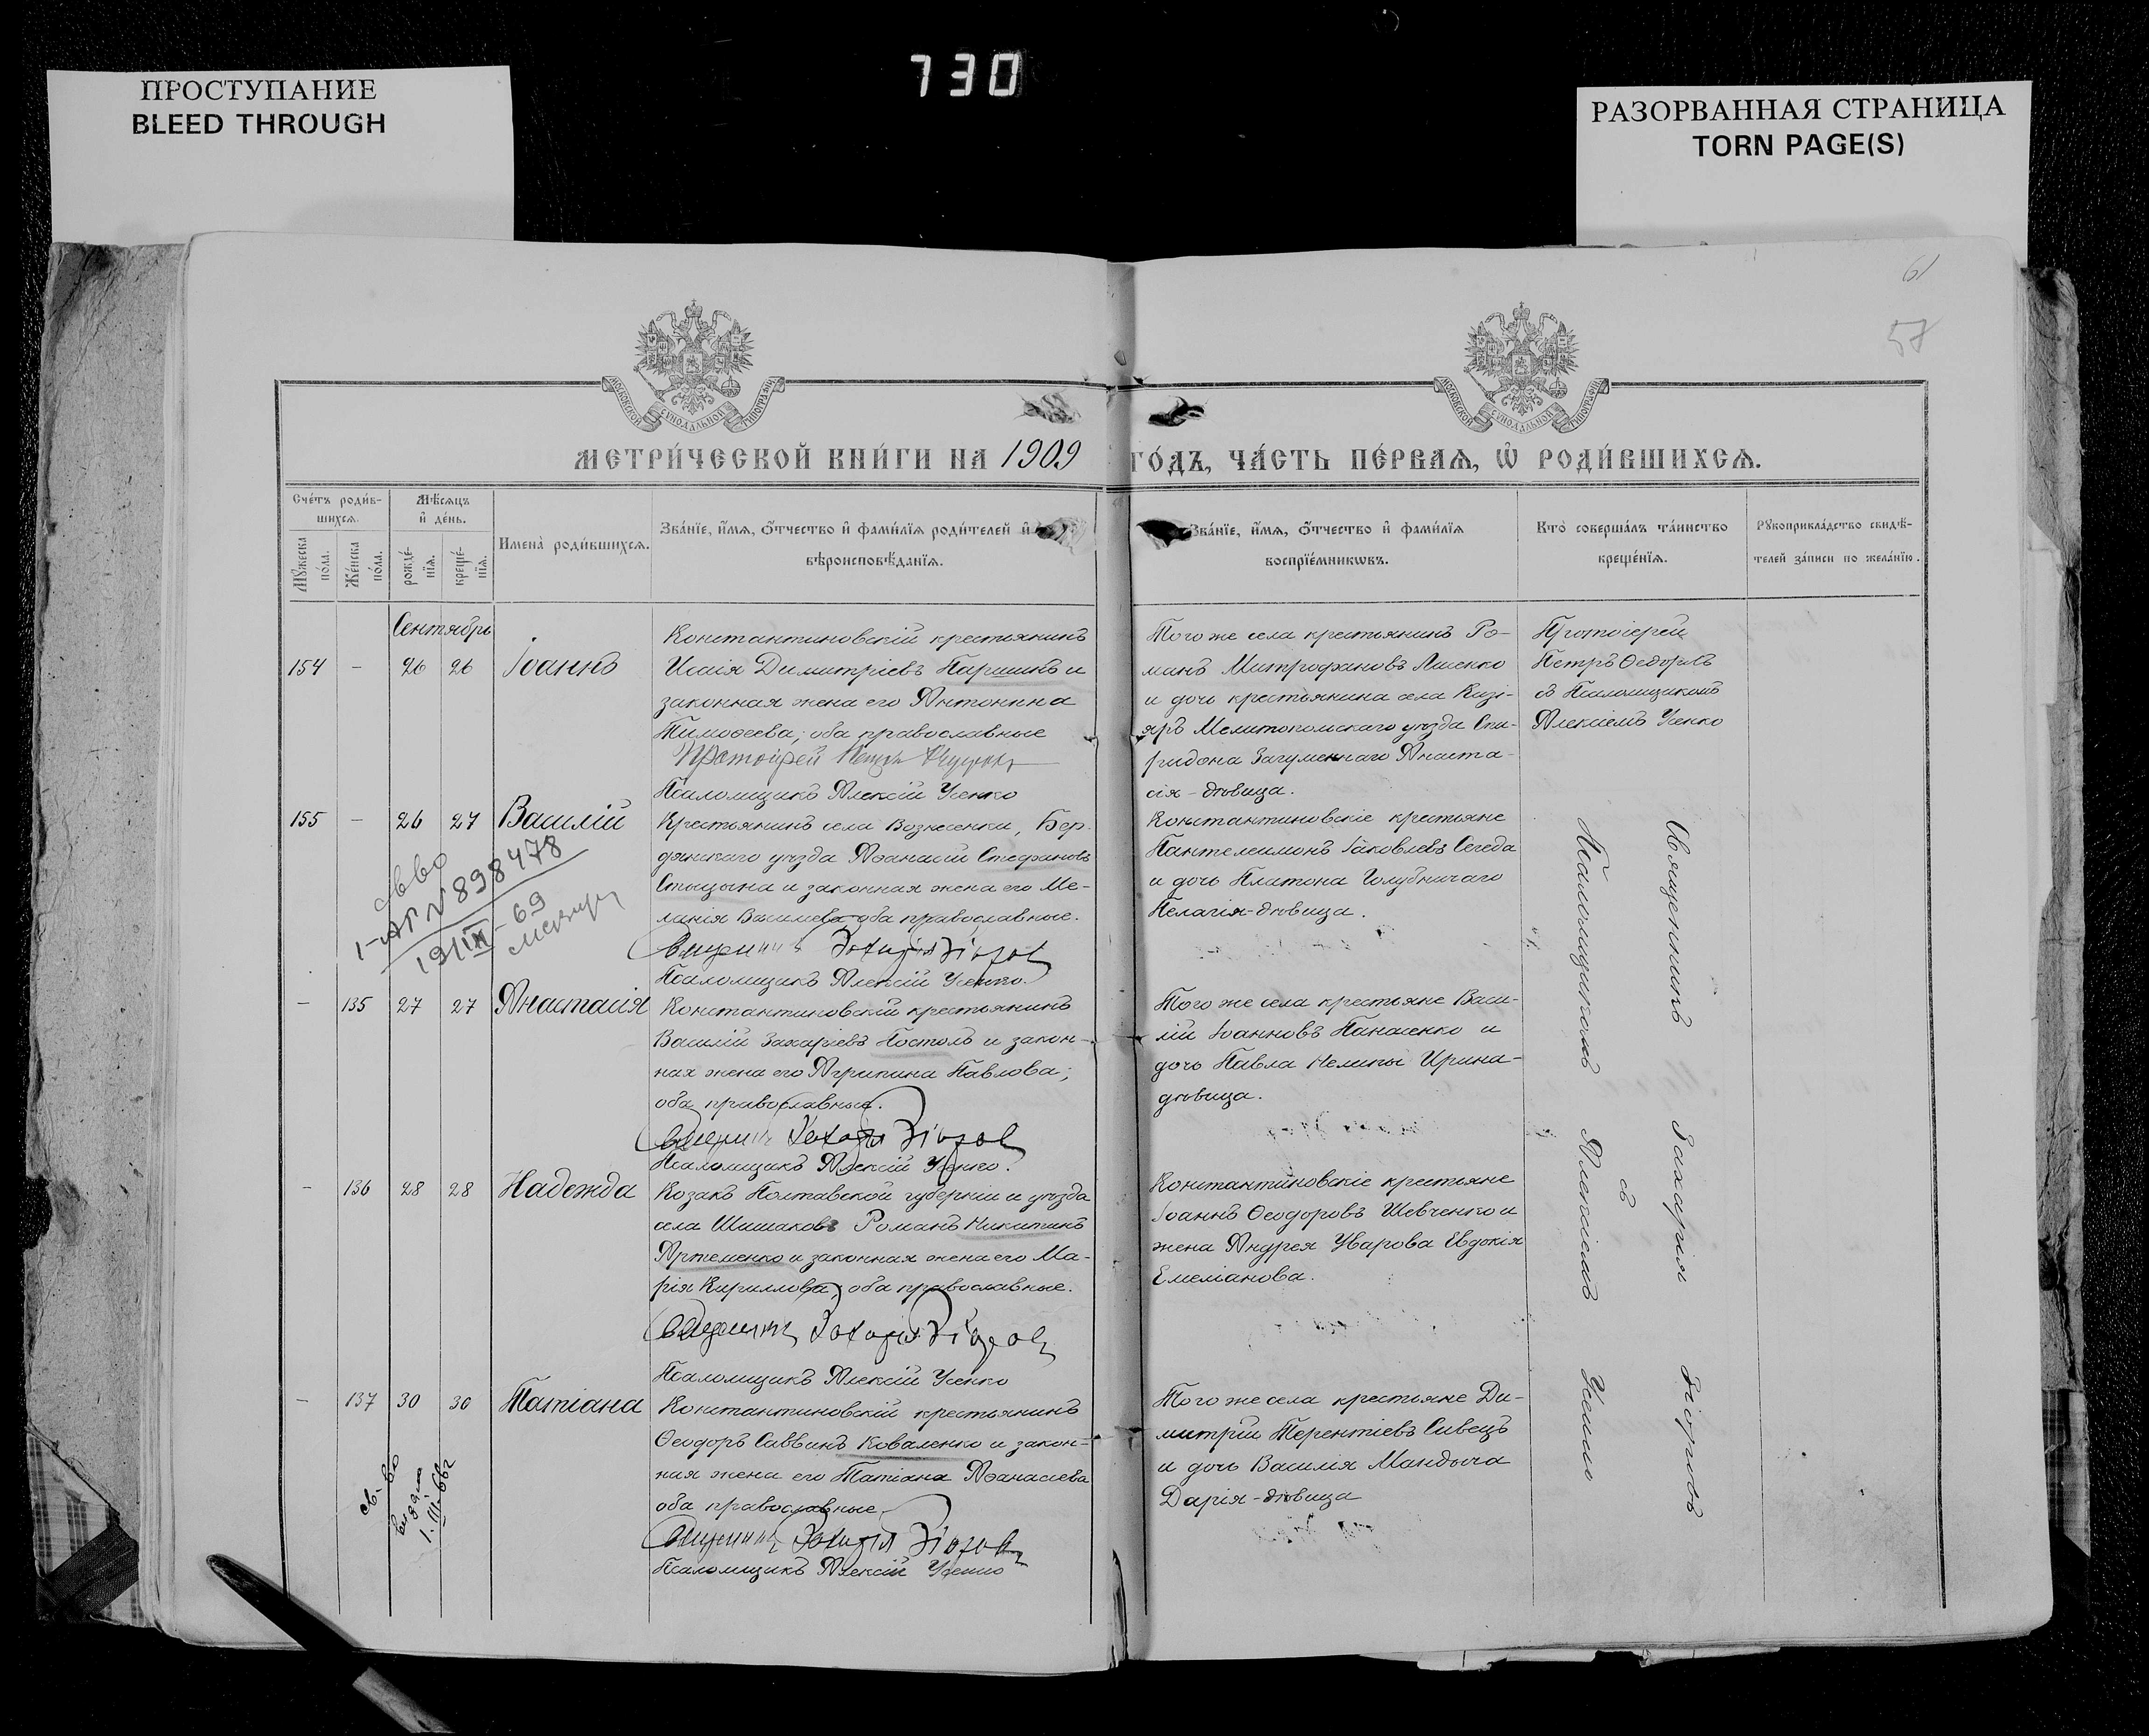 730
ПРОСТУПАНИЕ
BLEED THROUGH
РАЗОРВАННАЯ СТРАНИЦА
TORN PAGE(S)
61
57
МОСКОВСКОЙ СѴНОДАЛЬНОЙ ТИПОГРАФІИ
МОСКОВСКОЙ СѴНОДАЛЬНОЙ ТИПОГРАФІИ
МЕТРИ́ЧЕСКОЙ КНИ́ГИ НА 1909 ГО́ДЪ, ЧА́СТЬ ПЕ́РВАѦ, Ѡ҆ РОДИ́ВШИХСѦ.
Сче́тъ роди́в-
шихсѧ.
Мѣ́сѧцъ
и҆ де́нь.
Мꙋ́жеска
по́ла.
Же́нска
по́ла.
рожде́-
нїѧ.
креще́-
нїѧ.
Имена̀ роди́вшихсѧ.
Зва́нїе, и҆́мѧ, ѻ҆́тчество и҆ фами́лїѧ роди́телей и҆
вѣроисповѣ́данїѧ.
Зва́нїе, и҆́мѧ, ѻ҆́тчество и҆ фами́лїѧ
воспрїе́мникѡвъ.
Кто̀ соверша́лъ та́инство
креще́нїѧ.
Рꙋкоприкла́дство свидѣ́-
телей за́писи по жела́нїю.
Сентябрь
154 - 26 26 Іоаннъ
Константиновскій крестьянинъ
Исаія Димитріевъ Паршинъ и
законная жена его Антонина
Тимоѳеева, оба православные
Протоіерей Петръ
Псаломщикъ Алексій Усенко
Того же села крестьянинъ Ро-
манъ Митрофановъ Лисенко
и дочь крестьянина села Кизі-
яръ Мелитопольскаго уѣзда Спи-
ридона Загуменнаго Анаста-
сія - дѣвица.
Протоіерей
Петръ Ѳедоровъ
съ Псаломщикомъ
Алексіемъ Усенко
155 - 26 27 Василій
св-во
1-АП №898478
19/IX-69
Крестьянинъ села Вознесенки, Бер-
дянскаго уѣзда Аѳанасій Стефановъ
Спицына и законная жена его Ме-
ланія Васильева, оба православные.
Священникъ Захарія Зіоровъ
Псаломщикъ Алексій Усенко.
Константиновскіе крестьяне
Пантелеимонъ Іаковлевъ Сегеда
и дочь Платона Голубничаго
Пелагія-дѣвица.
- 135 27 27 Анастасія
Константиновскій крестьянинъ
Василій Захаріевъ Постолъ и закон-
ная жена его Агрипина Павлова;
оба православные.
Священникъ Захарія Зіоровъ
Псаломщикъ Алексій Усенко.
Того же села крестьяне Васи-
лій Іоанновъ Панасенко и
дочь Павла Нелипы Ирина-
дѣвица.
- 136 28 28 Надежда
Козакъ Полтавской губерніи и уѣзда
села Шишаковъ Романъ Никитинъ
Артеменко и законная жена его Ма-
рія Кириллова, оба православные.
Священникъ Захарія Зіоровъ
Псаломщикъ Алексій Усенко
Константиновскіе крестьяне
Іоаннъ Ѳеодоровъ Шевченко и
жена Андрея Уварова Евдокія
Емеліанова.
- 137 30 30 Татіана
св-во
выдан
1.III-66г
Константиновскій крестьянинъ
Ѳеодоръ Саввинъ Коваленко и закон-
ная жена его Татіана Аѳанасіева
оба православные
Священникъ Захарія Зіоровъ
Псаломщикъ Алексій Усенко
Того же села крестьяне Ди-
митрій Терентіевъ Сивецъ
и дочь Василія Мандыча
Дарія-дѣвица
Священникъ Захарія Зіоровъ
съ
Псаломщикомъ Алексіемъ Усенко